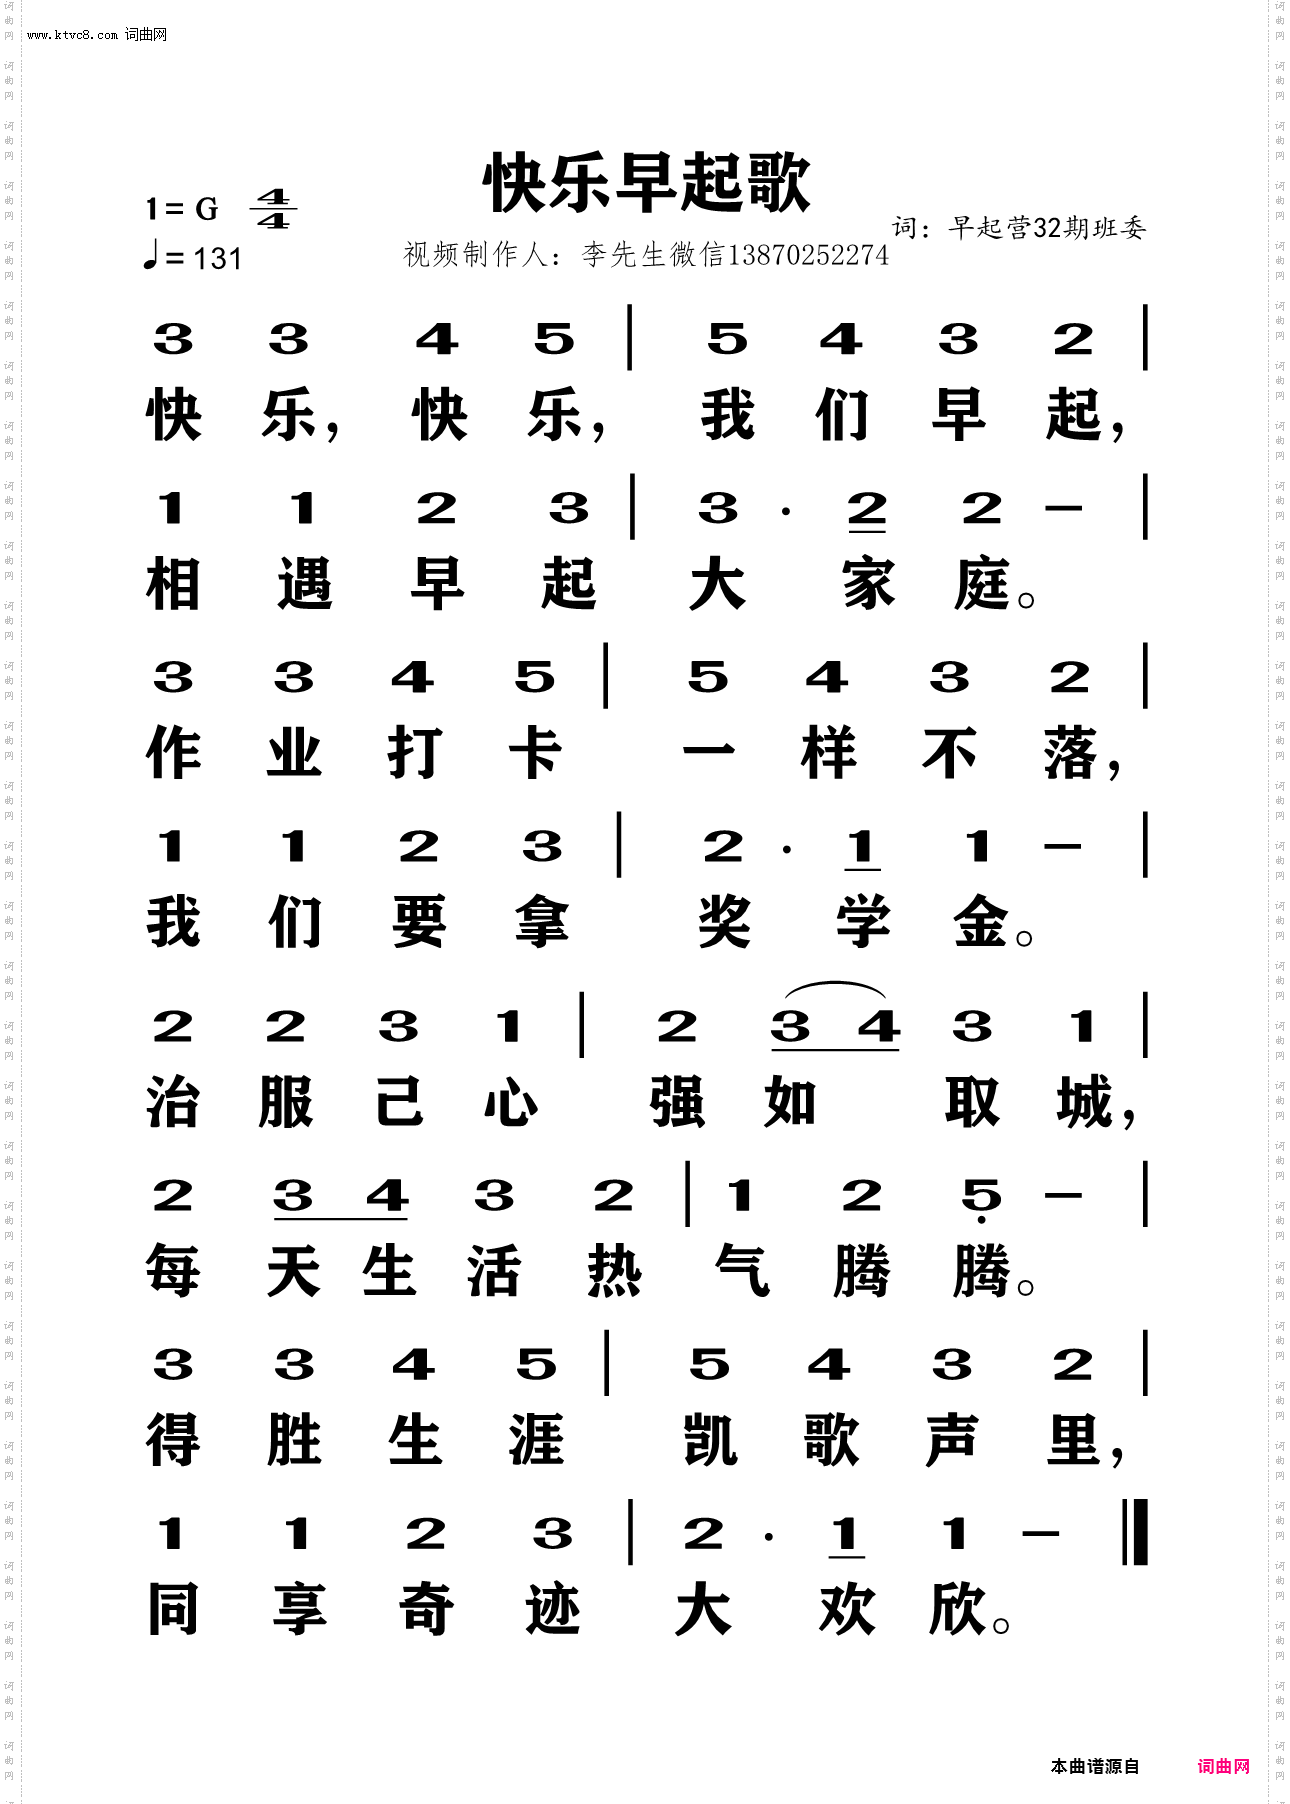 www.ktvc8.com 词曲网
快乐早起歌
1= G 4/4
♩= 131
词：早起营32期班委
视频制作人：李先生微信13870252274
3 3 4 5 | 5 4 3 2 |
快 乐，快 乐，我 们 早 起，
1 1 2 3 | 3 · 2 2 － |
相 遇 早 起 大 家 庭。
3 3 4 5 | 5 4 3 2 |
作 业 打 卡 一 样 不 落，
1 1 2 3 | 2 · 1 1 － |
我 们 要 拿 奖 学 金。
2 2 3 1 | 2 3 4 3 1 |
治 服 己 心 强 如 取 城，
2 3 4 3 2 | 1 2 5 － |
每 天 生 活 热 气 腾 腾。
3 3 4 5 | 5 4 3 2 |
得 胜 生 涯 凯 歌 声 里，
1 1 2 3 | 2 · 1 1 － ‖
同 享 奇 迹 大 欢 欣。
本曲谱源自 词曲网